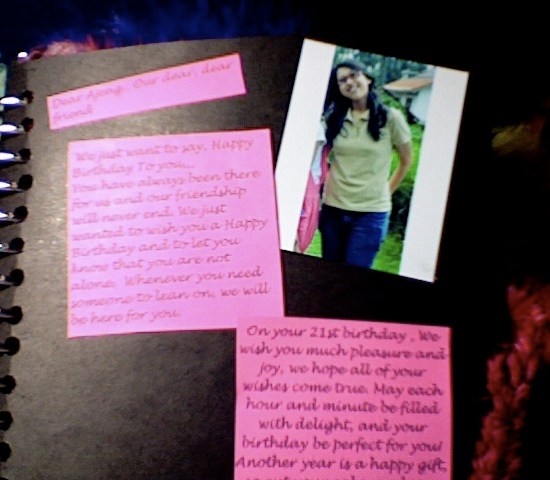 Dear Ajeng.. Our dear, dear
friend
We just want to say, Happy
Birthday To you...
You have always been there
for us and our friendship
will never end. We just
wanted to wish you a Happy
Birthday and to let you
know that you are not
alone. Whenever you need
someone to lean on, we will
be here for you
On your 21st birthday , We
wish you much pleasure and
joy, we hope all of your
wishes come true. May each
hour and minute be filled
with delight, and your
birthday be perfect for you!
Another year is a happy gift,